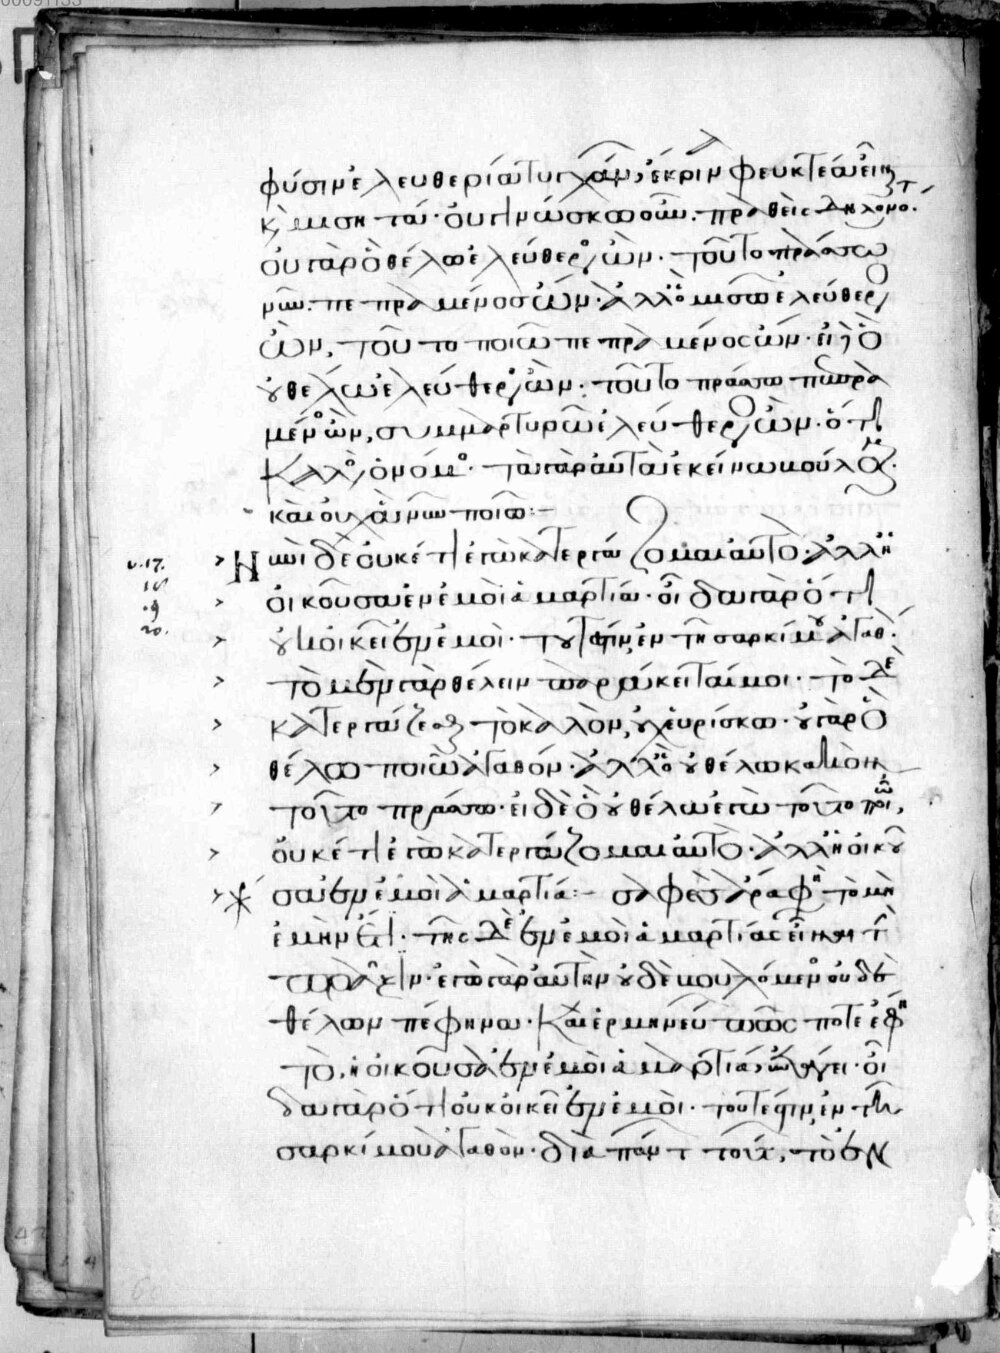 φύσιν ἐλευθερίαν τυγχάνων, ἔκρινα φευκτέα εἶναι
καὶ μισητά· οὐ γινώσκω οὖν. πραθεὶς δηλονότι.
οὐ γὰρ ὃ θέλω ἐλεύθερος ὢν. τοῦτο πράσσω
νῦν. πεπραμένος ὤν· ἀλλ' ὃ μισῶ ἐλεύθερος
ὢν, τοῦτο ποιῶ πεπραμένος ὤν· εἰ δὲ ὃ
οὐ θέλω ἐλεύθερος ὤν· τοῦτο πράσσω πεπρα
μένος ὢν, συμμαρτυρῶ ἐλεύθερος ὢν· ὅτι
καλὸς ὁ νόμος· τὰ γὰρ αὐτὰ ἐκείνω βούλομαι.
κἂν οὐχ ἃ νῦν ποιῶ:-
v. 17. Νυνὶ δὲ οὐκέτι ἐγὼ κατεργάζομαι αὐτὸ· ἀλλ' ἡ
18 οἰκοῦσα ἐν ἐμοὶ ἁμαρτία· οἶδα γὰρ ὅτι
19 οὐκ οἰκεῖ ἐν ἐμοὶ· τουτέστιν, ἐν τῆ σαρκί μου ἀγαθόν·
20. τὸ μὲν γὰρ θέλειν παράκειταί μοι· τὸ δὲ
κατεργάζεσθαι τὸ καλὸν, οὐχ εὑρίσκω· οὐ γὰρ ὃ
θέλω ποιῶ ἀγαθόν· ἀλλ' ὃ οὐ θέλω κακὸν
τοῦτο πράσσω· εἰ δὲ ὃ οὐ θέλω ἐγὼ τοῦτο ποιῶ,
οὐκέτι ἐγὼ κατεργάζομαι αὐτὸ· ἀλλ' ἡ οἰκοῦ
σα ἐν ἐμοὶ ἁμαρτία:- σαφὲς ἄρα φησὶ τὸ μὴ
ἐμὴν· τῆς δὲ ἐν ἐμοὶ ἁμαρτίας εἶναι τὴν
ἐγὼ γὰρ αὐτὴν οὐδὲ βουλόμενος οὐδὲ
θέλων πέφηνα· καὶ ἑρμηνεύει πῶς ποτε ἔφη
τὸ, ἡ οἰκοῦσα ἐν ἐμοὶ ἁμαρτία, λέγει· οἶ
δα γὰρ ὅτι οὐκ οἰκεῖ ἐν ἐμοὶ· τουτέστιν, ἐν τῆ
σαρκί μου ἀγαθὸν· διὰ πάντα ταῦτα, τὸ ἐν